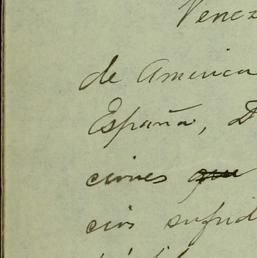 Venez
de America
España, D
ciones que
cios sufrid